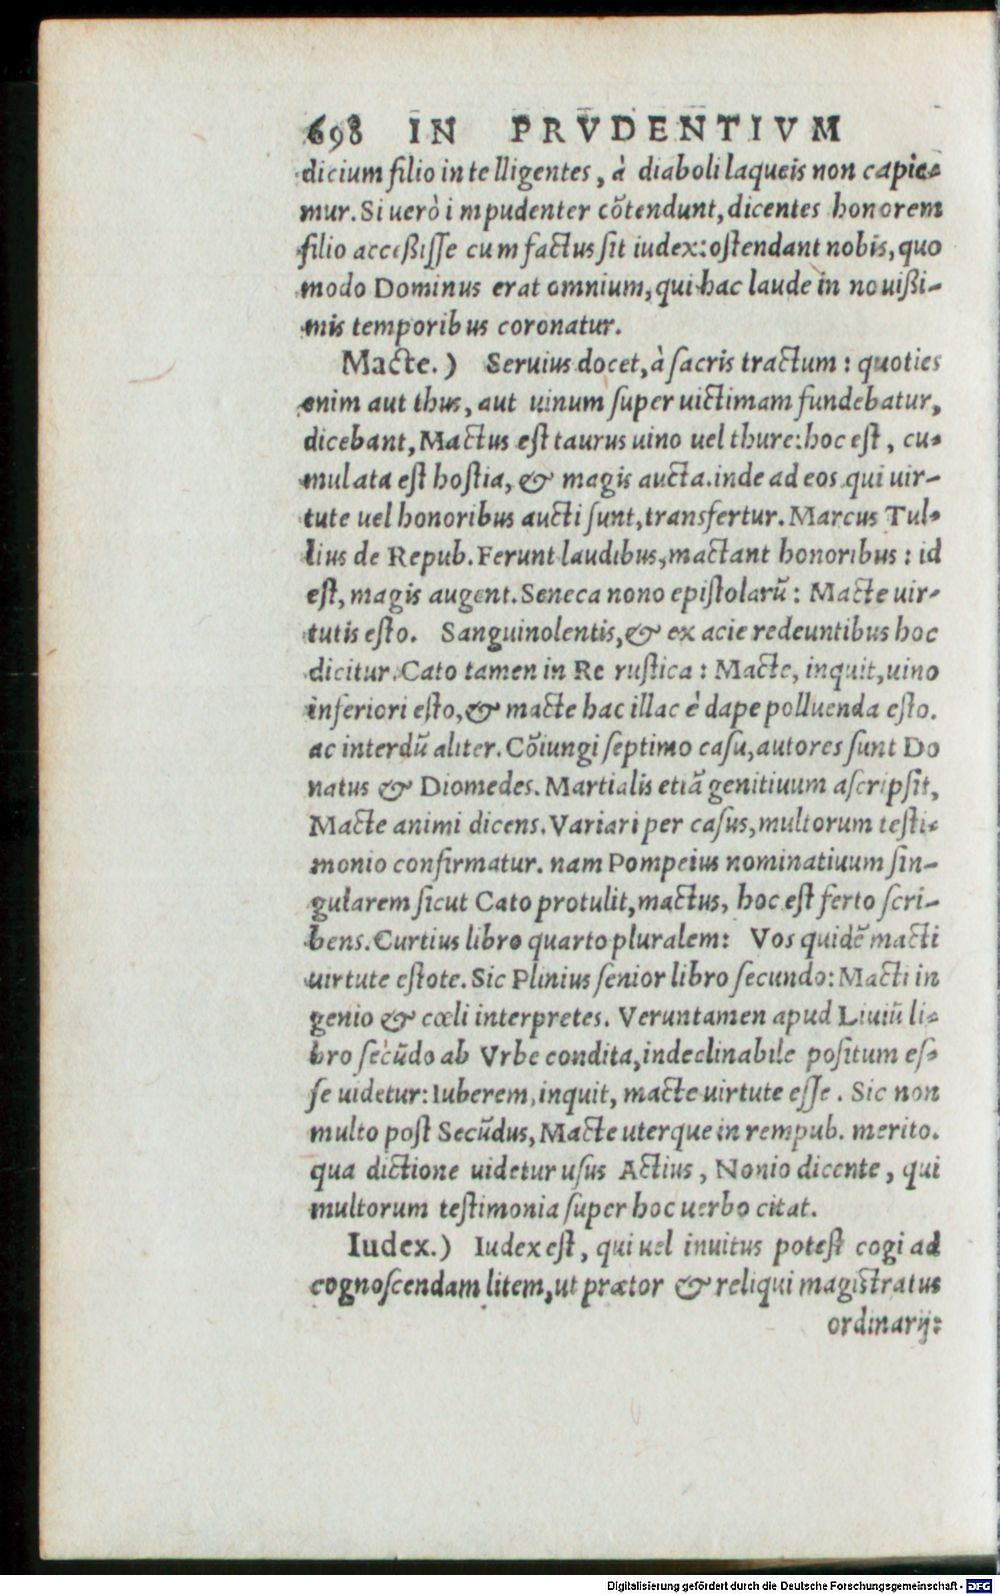 698 IN PRVDENTIVM
dicium filio intelligentes, à diaboli laqueis non capie-
mur. Si uerò impudenter cõtendunt, dicentes honorem
filio accessisse cum factus sit iudex: ostendant nobis, quo
modo Dominus erat omnium, qui hac laude in nouissi-
mis temporibus coronatur.
Macte.) Seruius docet, à sacris tractum: quoties
enim aut thus, aut uinum super uictimam fundebatur,
dicebant, Mactus est taurus uino uel thure: hoc est, cu-
mulata est hostia, & magis aucta. inde ad eos qui uir-
tute uel honoribus aucti sunt, transfertur. Marcus Tul-
lius de Repub. Ferunt laudibus, mactant honoribus: id
est, magis augent. Seneca nono epistolarũ: Macte uir-
tutis esto. Sanguinolentis, & ex acie redeuntibus hoc
dicitur. Cato tamen in Re rustica: Macte, inquit, uino
inferiori esto, & macte hac illac è dape polluenda esto.
ac interdũ aliter. Cõiungi septimo casu, autores sunt Do
natus & Diomedes. Martialis etiã genitiuum ascripsit,
Macte animi dicens. Variari per casus, multorum testi-
monio confirmatur. nam Pompeius nominatiuum sin-
gularem sicut Cato protulit, mactus, hoc est ferto scri-
bens. Curtius libro quarto pluralem: Vos quidẽ macti
uirtute estote. Sic Plinius senior libro secundo: Macti in
genio & cœli interpretes. Veruntamen apud Liuiũ li-
bro secũdo ab Vrbe condita, indeclinabile positum es-
se uidetur: Iuberem, inquit, macte uirtute esse. Sic non
multo post Secũdus, Macte uterque in rempub. merito.
qua dictione uidetur usus Actius, Nonio dicente, qui
multorum testimonia super hoc uerbo citat.
Iudex.) Iudex est, qui uel inuitus potest cogi ad
cognoscendam litem, ut prætor & reliqui magistratus
ordinarij:
Digitalisierung gefördert durch die Deutsche Forschungsgemeinschaft - DFG